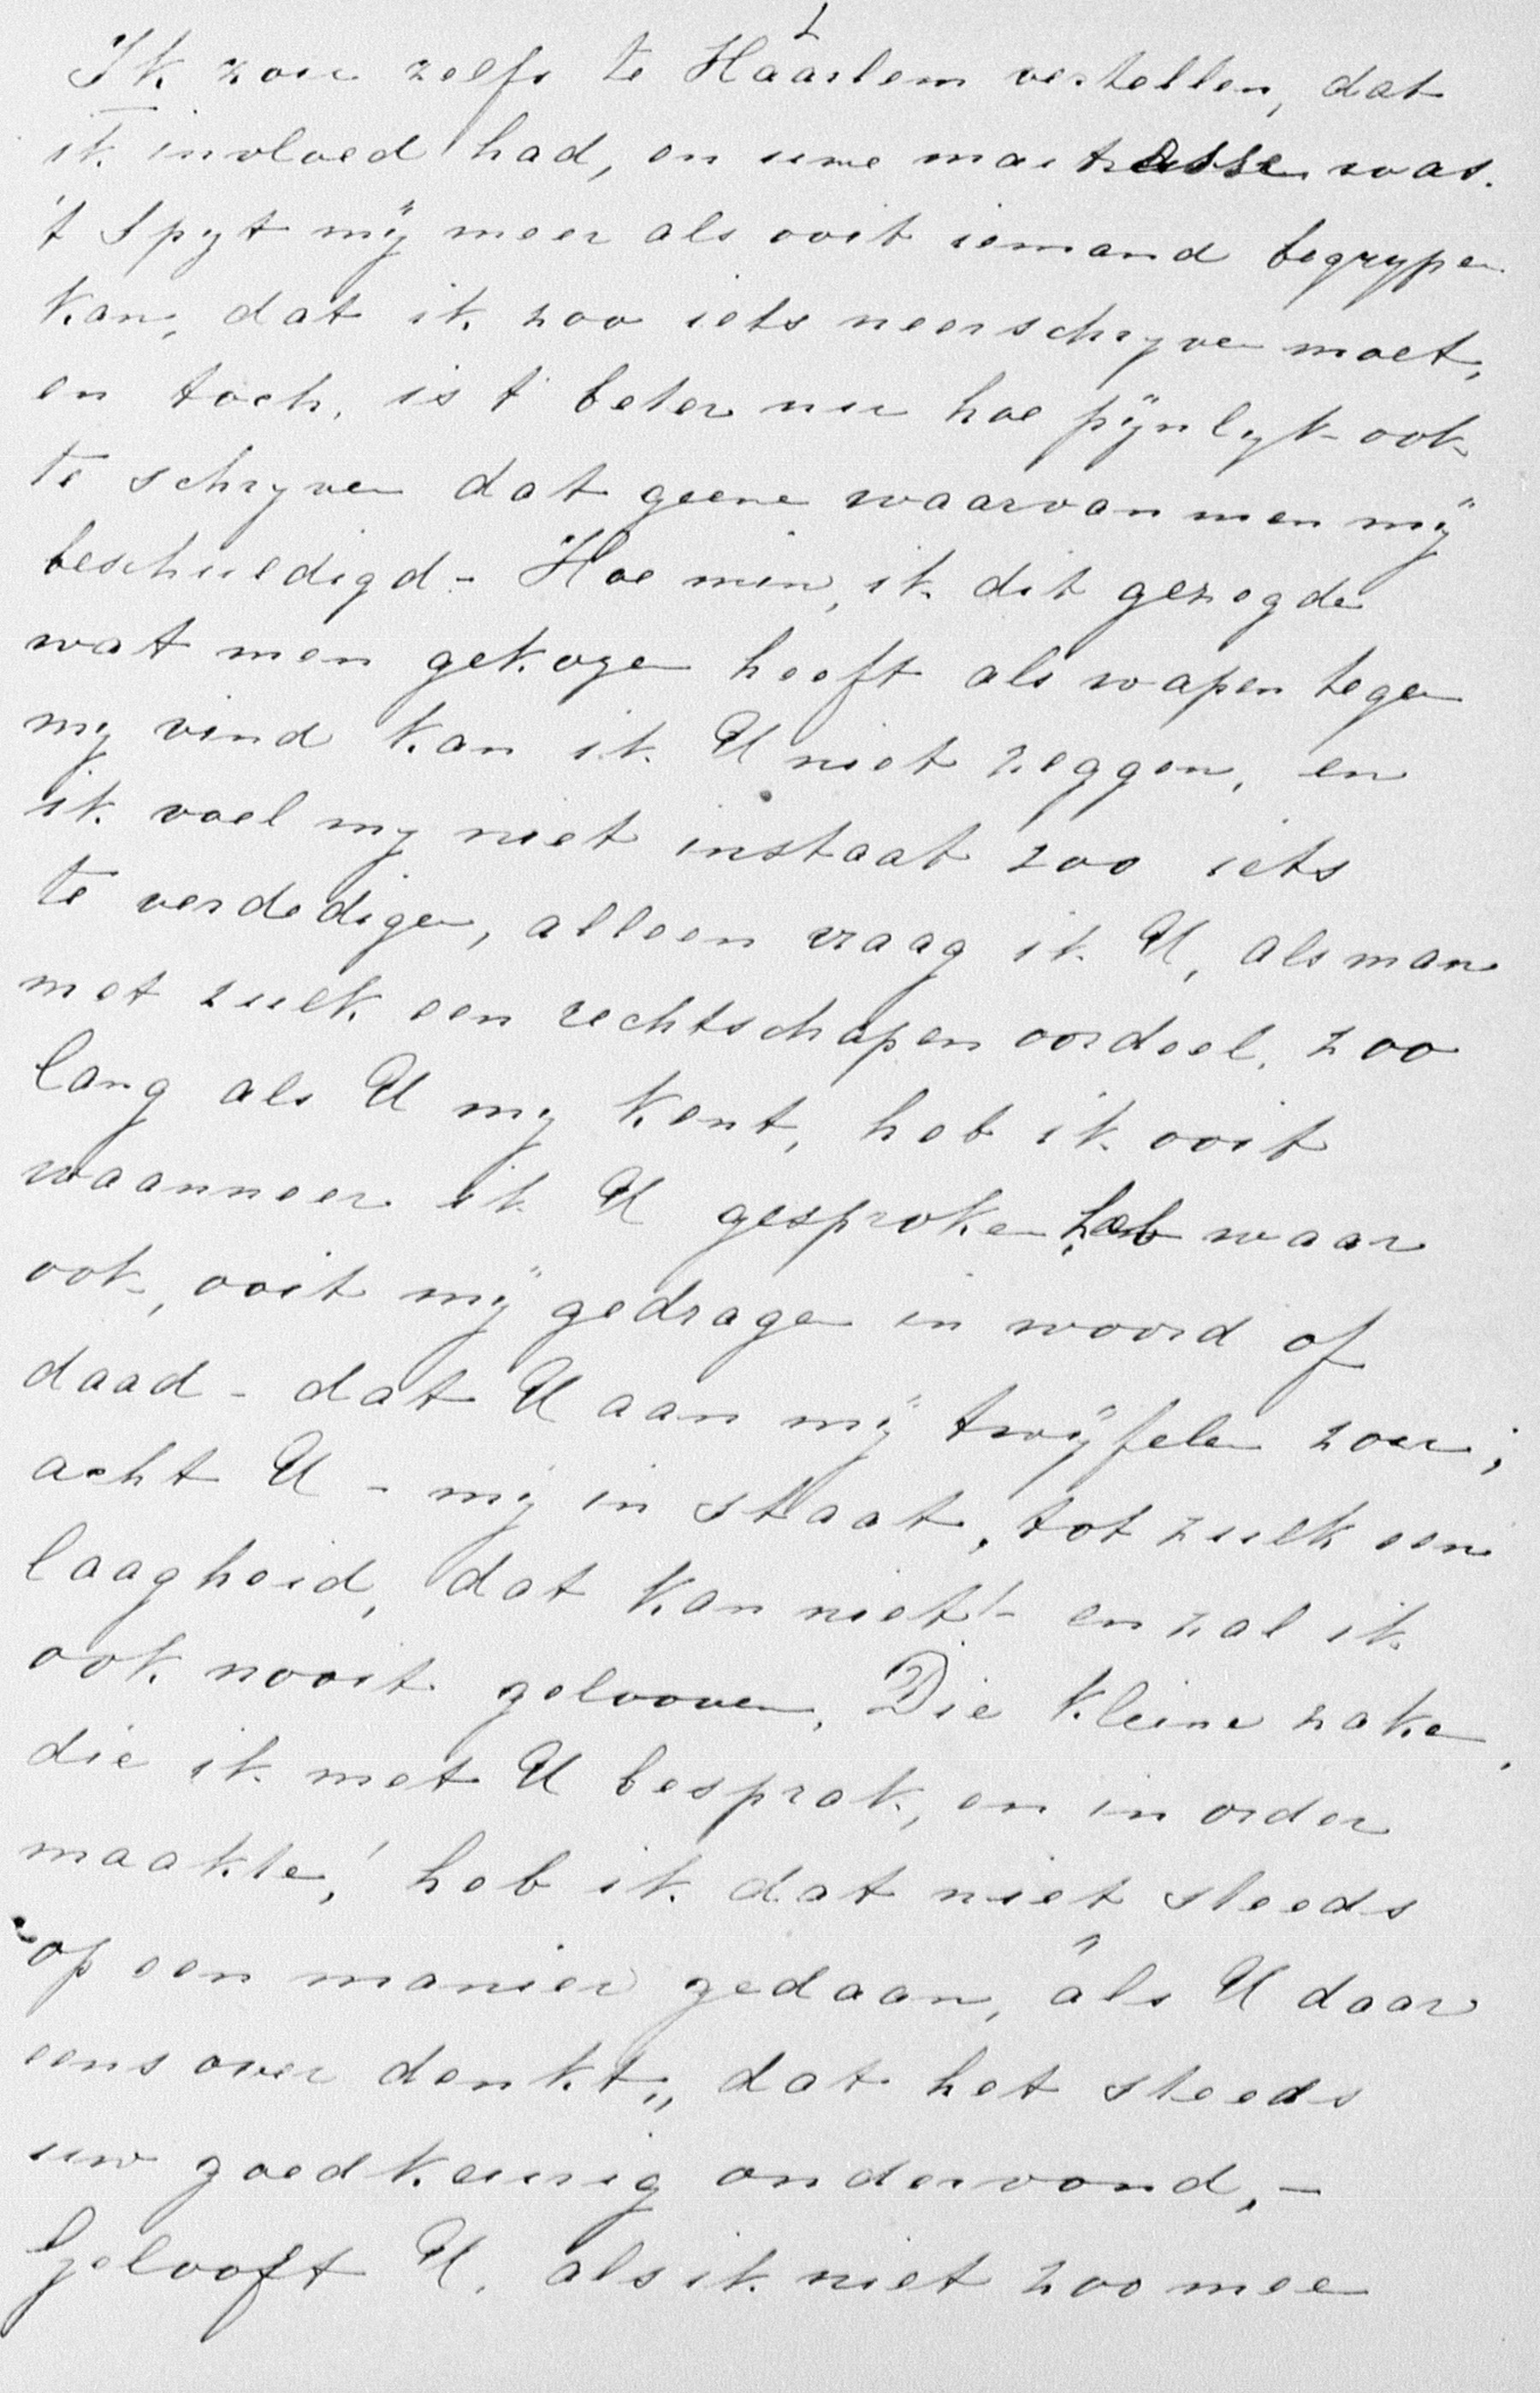 Ik zou zelfs te Haarlem vertellen, dat
ik invloed had, en uwe maitresse was.
't Spyt mÿ meer als ooit iemand begrypen
kan, dat ik zoo iets neerschryven moet,
en toch, is 't beter nu hoe pÿnlyk ook
te schryven dat geene waarvan men mÿ
beschuldigd - Hoe min, ik dit gezegde
wat men gekozen heeft als wapen tegen
my vind kan ik U niet zeggen, en
ik voel my niet instaat zoo iets
te verdedigen, alleen vraag ik U, als man
met zulk een rechtschapen oordeel, zoo
lang als U my kent, heb ik ooit
waanneer ik U gesproken heb waar
ook, ooit mÿ gedragen in woord of
daad - dat U aan mÿ twÿfelen zou;
acht U - mÿ in staat, tot zulk een
laagheid, dat kan niet! - en zal ik
ook nooit gelooven. Die kleine zaken,
die ik met U besprak, en in order
maakte,! heb ik dat niet steeds
op een manier gedaan, als U daar
eens over denkt,, dat het steeds
uw goedkeurig ondervond, -
Gelooft U, als ik niet zoo mee